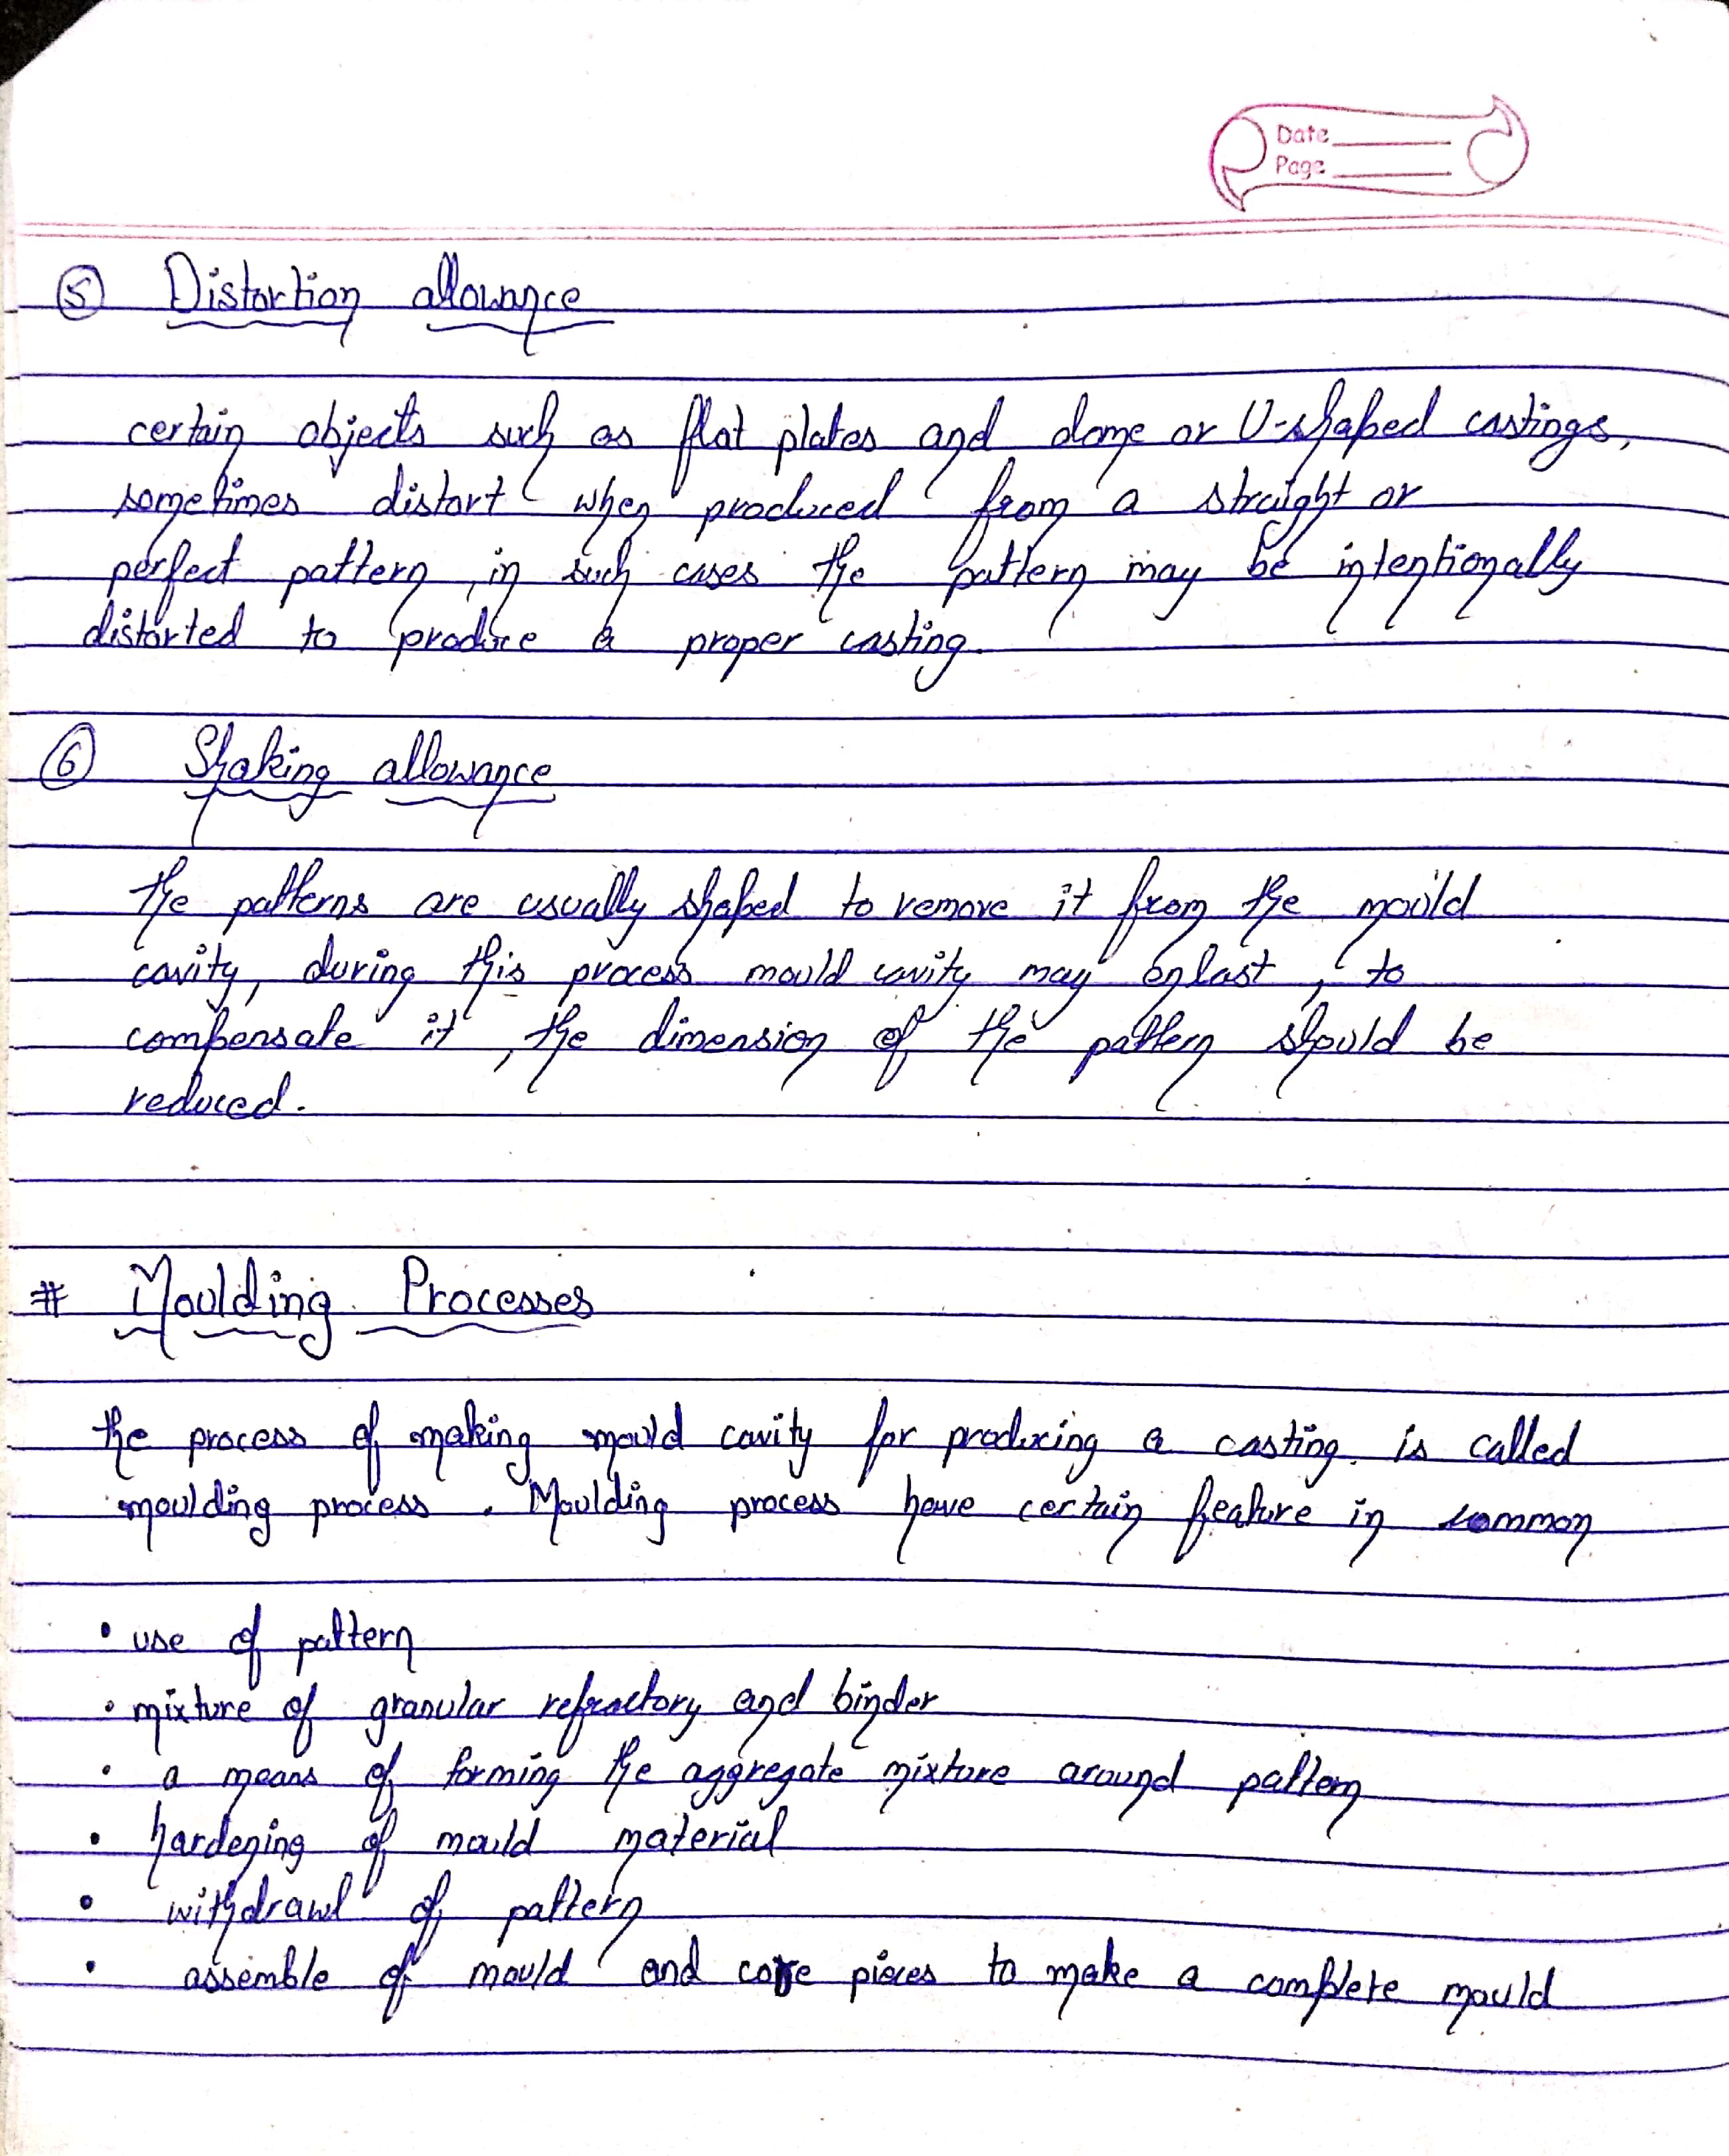 Date
Page
⑤ Distortion allowance
certain objects such as flat plates and dome or U-shaped castings,
sometimes distort when produced from a straight or
perfect pattern, in such cases the pattern may be intentionally
distorted to produce a proper casting.
⑥ Shaking allowance
The patterns are usually shaped to remove it from the mould
cavity, during this process mould cavity may enlast, to
compensate it, the dimension of the pattern should be
reduced.
# Moulding Processes
the process of making mould cavity for producing a casting. is called
moulding process. Moulding process have certain feature in common
• use of pattern
• mixture of granular refractory and binder
• a means of forming the aggregate mixture around pattern
• hardening of mould material
• withdrawl of pattern
• assemble of mould and core pieces to make a complete mould